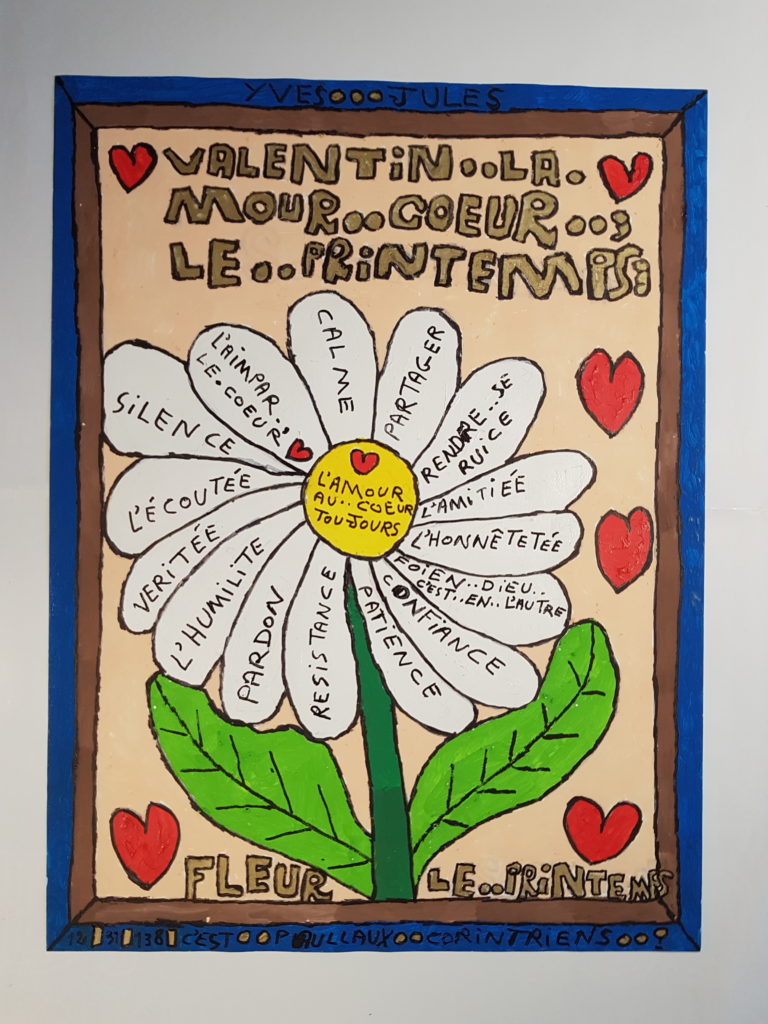 YVES...JULES
VALENTIN..LA.
MOUR..COEUR..;
LE..PRINTEMPS;
SILENCE
L'AIMPAR..
LE.COEUR'
CALME
PARTAGER
RENDRE..SE
RUICE
L'AMITIEÉ
L'HONNÊTETÉE
FOIEN..DIEU..
C'EST..EN..L'AUTRE
CONFIANCE
PATIENCE
RESISTANCE
PARDON
L'HUMILITE
VERITÉE
L'ÉCOUTÉE
L'AMOUR
AU..COEUR
TOUJOURS
FLEUR
LE..PRINTEMPS
12 31 138 C'EST..PAULLAUX..CORINTRIENS..?